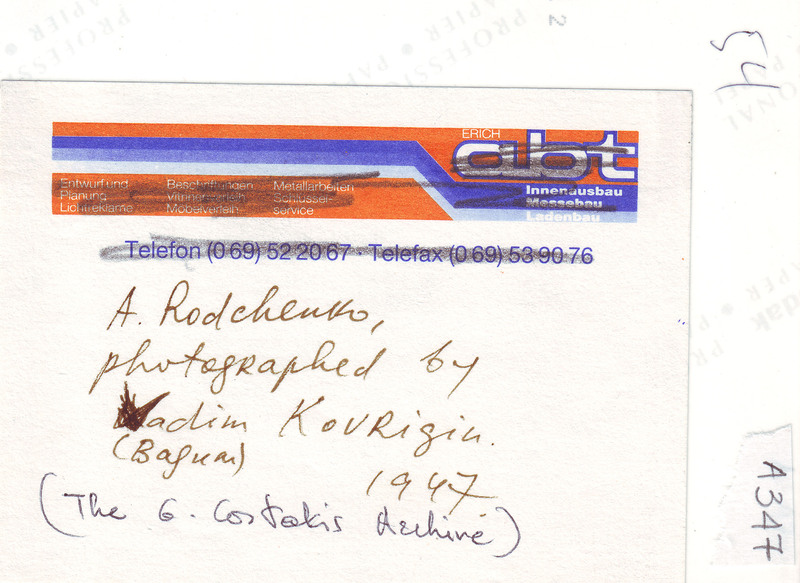 54
ERICH
abt
Innenausbau
Messebau
Ladenbau
Entwurf und
Planung
Lichtreklame
Beschriftungen
Vitrinenverleih
Möbelverleih
Metallarbeiten
Schlüssel-
service
Telefon (0 69) 52 20 67 · Telefax (0 69) 53 90 76
A. Rodchenko,
photographed by
Vadim Kovrigin.
(Вадим)
1947
(The G. Costakis Archive)
A347